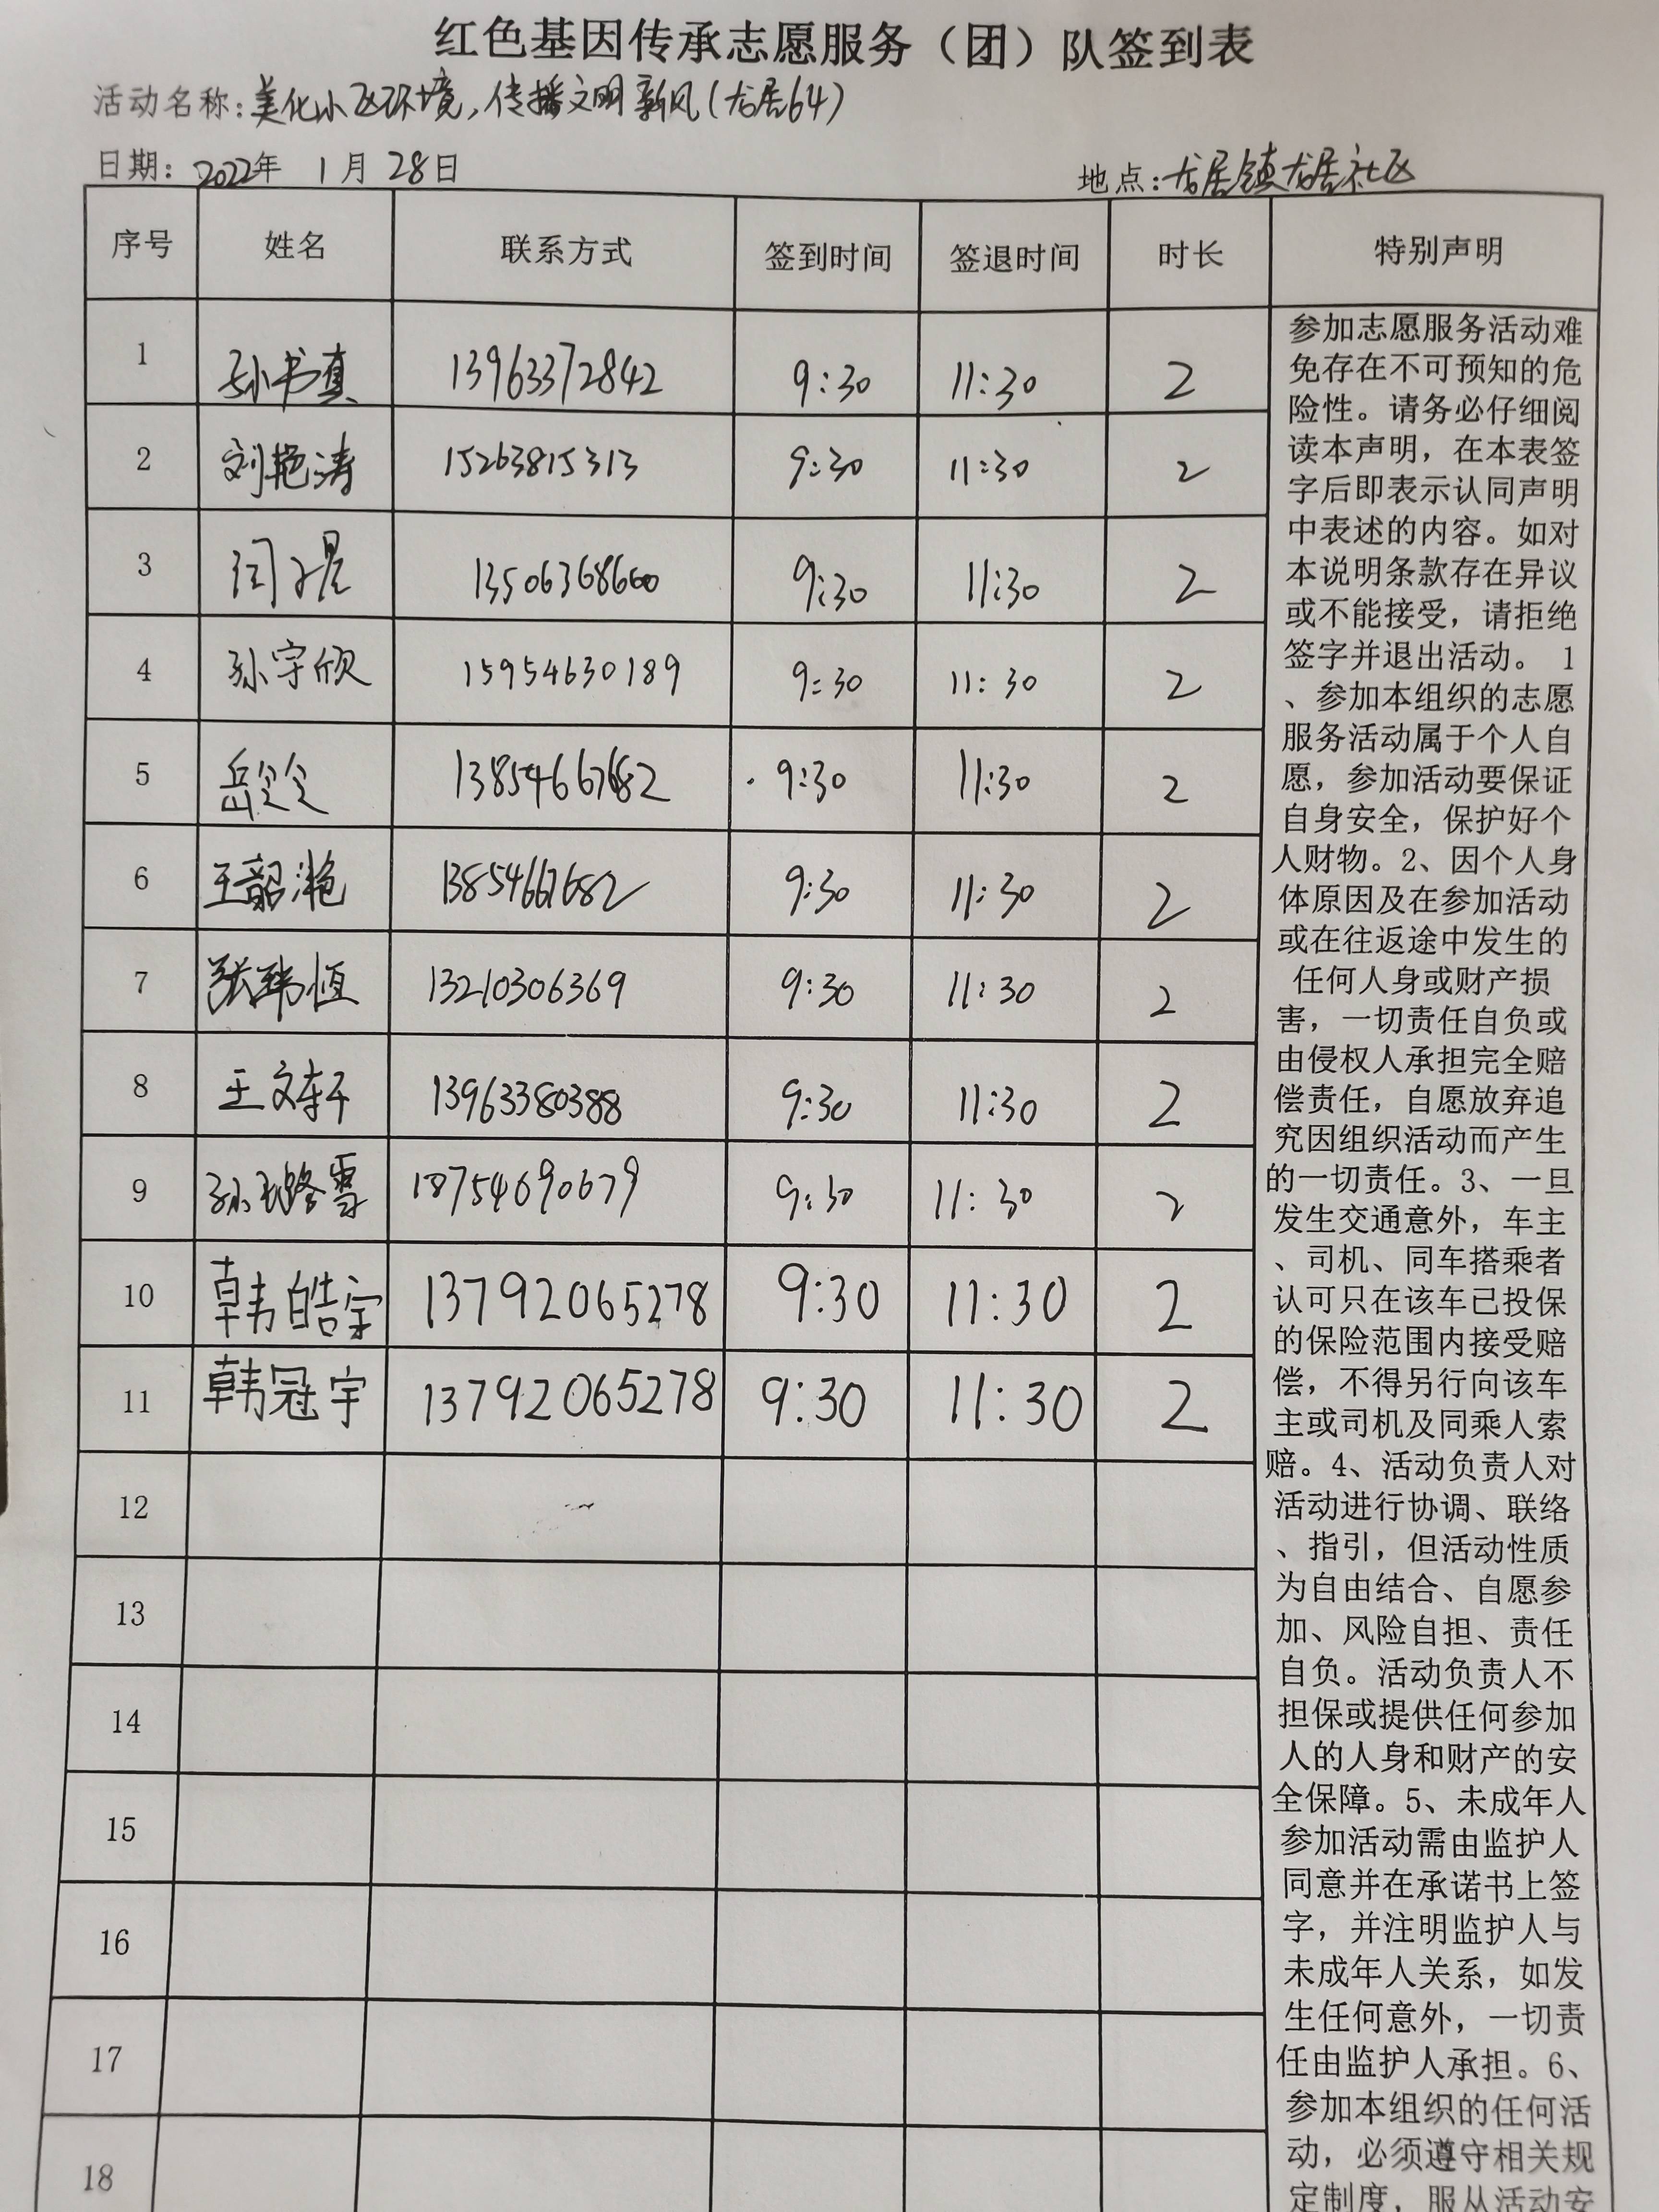 红色基因传承志愿服务（团）队签到表
活动名称：美化小区环境，传播文明新风（龙居64）
日期：2022年 1月 28日 地点：龙居镇龙居社区
序号 姓名 联系方式 签到时间 签退时间 时长 特别声明
1 孙书真 13963372842 9:30 11:30 2
2 刘艳涛 15263815313 9:30 11:30 2
3 13506368660 9:30 11:30 2
4 孙守欣 15954630189 9:30 11:30 2
5 岳令令 13854667682 9:30 11:30 2
6 王韶滟 13854667682 9:30 11:30 2
7 张玮恒 13210306369 9:30 11:30 2
8 王文轩 13963380388 9:30 11:30 2
9 18754690679 9:30 11:30 2
10 韩皓宇 13792065278 9:30 11:30 2
11 韩冠宇 13792065278 9:30 11:30 2
12
13
14
15
16
17
18
参加志愿服务活动难
免存在不可预知的危
险性。请务必仔细阅
读本声明，在本表签
字后即表示认同声明
中表述的内容。如对
本说明条款存在异议
或不能接受，请拒绝
签字并退出活动。 1
、参加本组织的志愿
服务活动属于个人自
愿，参加活动要保证
自身安全，保护好个
人财物。2、因个人身
体原因及在参加活动
或在往返途中发生的
任何人身或财产损
害，一切责任自负或
由侵权人承担完全赔
偿责任，自愿放弃追
究因组织活动而产生
的一切责任。3、一旦
发生交通意外，车主
、司机、同车搭乘者
认可只在该车已投保
的保险范围内接受赔
偿，不得另行向该车
主或司机及同乘人索
赔。4、活动负责人对
活动进行协调、联络
、指引，但活动性质
为自由结合、自愿参
加、风险自担、责任
自负。活动负责人不
担保或提供任何参加
人的人身和财产的安
全保障。5、未成年人
参加活动需由监护人
同意并在承诺书上签
字，并注明监护人与
未成年人关系，如发
生任何意外，一切责
任由监护人承担。6、
参加本组织的任何活
动，必须遵守相关规
定制度，服从活动安